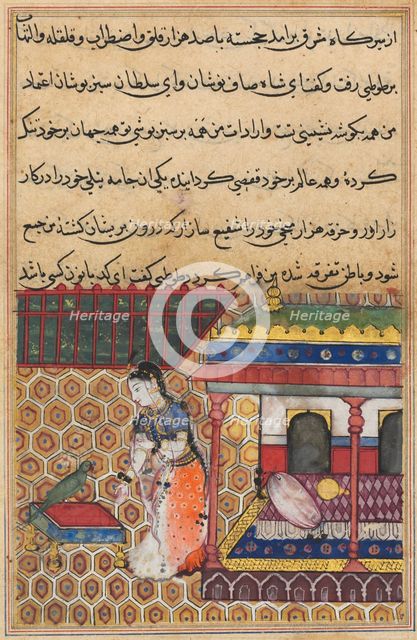 از سرکاه شرق برامد خجسته باصد هزار قلق و اضطراب و قلقله و التهاب
بر طوطی رفت و کفت ای شاه صاف نوشان و ای سلطان سبز پوشان اعتماد
من همه بکوشه نشینی تست و ارادات من همه بر سبز پوشی تو همه جهان بر خود تنک
کرده و همه عالم بر خود قفصی کردانیده یکی ازان جامه نیلی خود را در کار
زار اور و خرقه هزار میخی خود را شفیع ساز که درون پریشان کشته من جمع
شود و باطن تفرقه شده من فراهم کردد طوطی کفت ای کدبانو کسی باشد
Heritage
Heritage
Heritage
Heritage
Heritage
Heritage
Heritage
Heritage